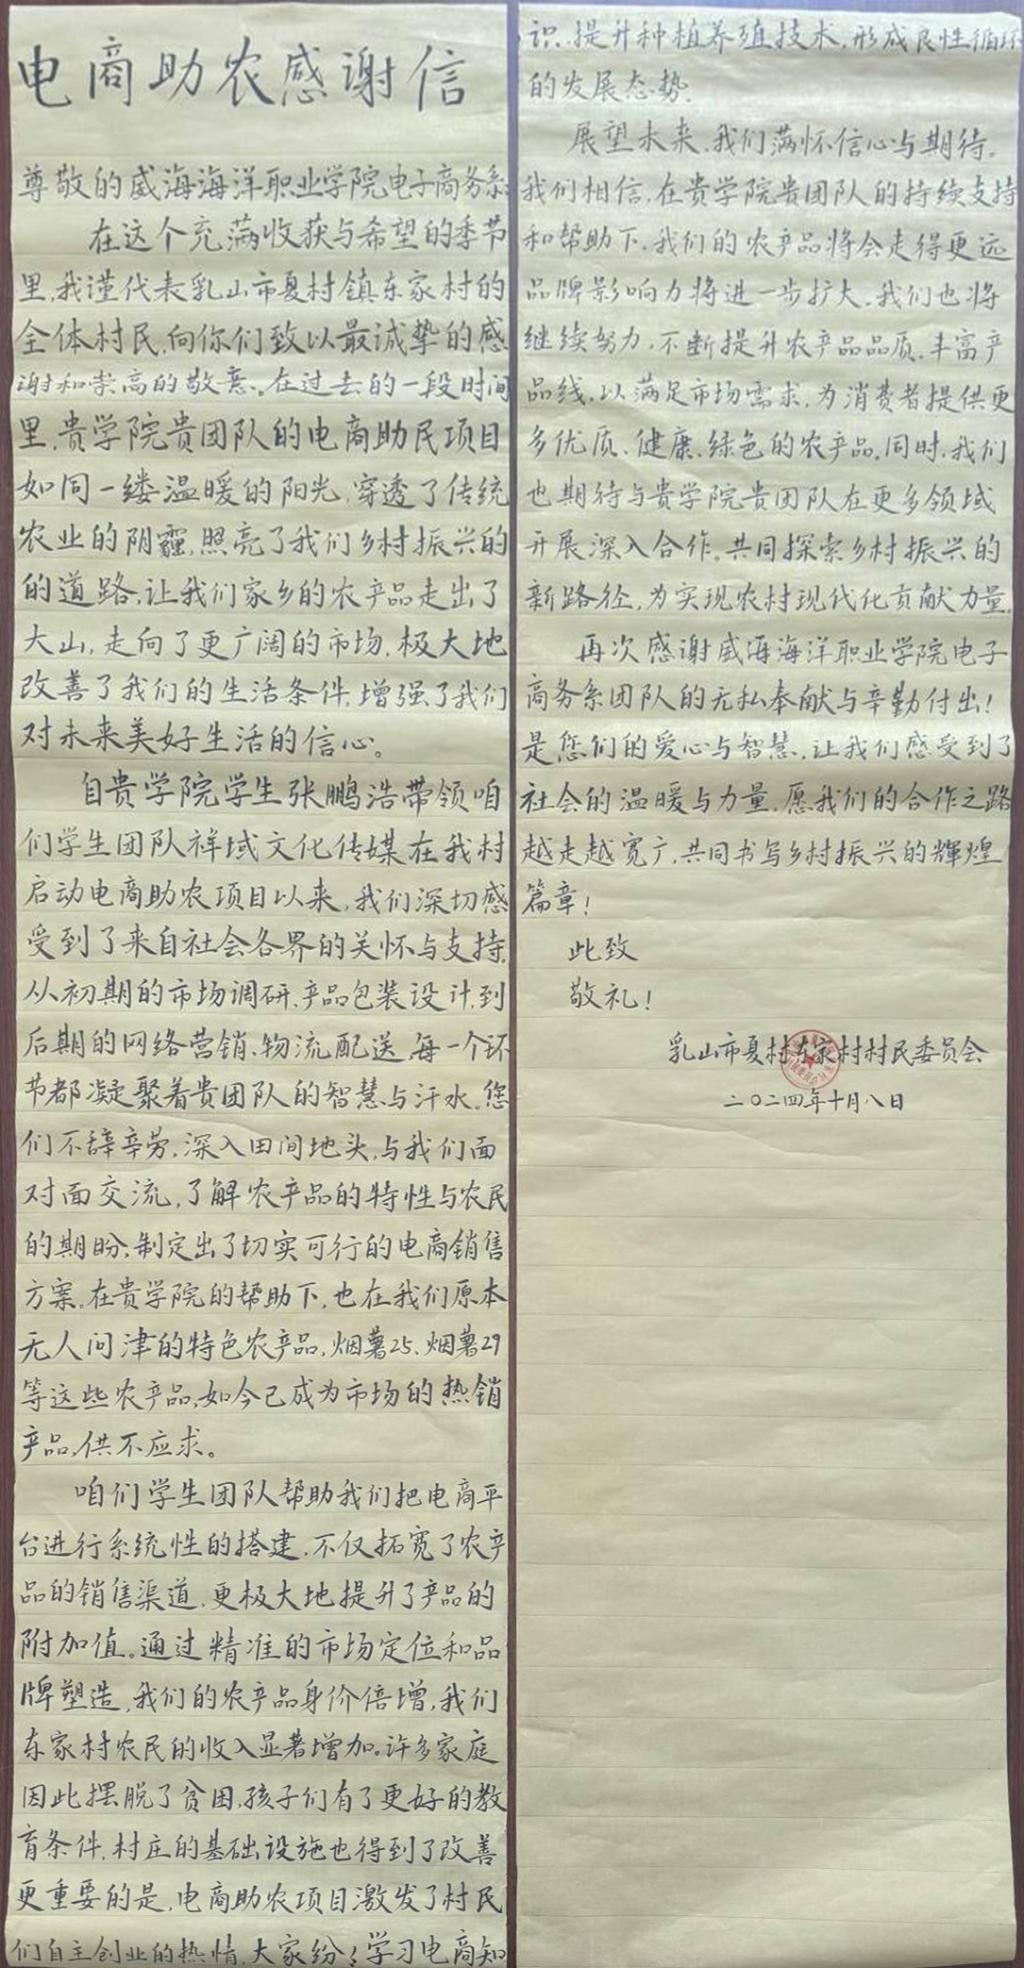 电商助农感谢信
尊敬的威海海洋职业学院电子商务系
在这个充满收获与希望的季节
里,我谨代表乳山市夏村镇东家村的
全体村民,向你们致以最诚挚的感
谢和崇高的敬意。在过去的一段时间
里,贵学院贵团队的电商助民项目
如同一缕温暖的阳光,穿透了传统
农业的阴霾,照亮了我们乡村振兴的
的道路,让我们家乡的农产品走出了
大山,走向了更广阔的市场,极大地
改善了我们的生活条件,增强了我们
对未来美好生活的信心。
自贵学院学生张鹏浩带领咱
们学生团队祥域文化传媒在我村
启动电商助农项目以来,我们深切感
受到了来自社会各界的关怀与支持,
从初期的市场调研、产品包装设计,到
后期的网络营销、物流配送,每一个环
节都凝聚着贵团队的智慧与汗水。您
们不辞辛劳,深入田间地头,与我们面
对面交流,了解农产品的特性与农民
的期盼;制定出了切实可行的电商销售
方案。在贵学院的帮助下,也在我们原本
无人问津的特色农产品,烟薯25、烟薯29
等这些农产品,如今已成为市场的热销
产品,供不应求。
咱们学生团队帮助我们把电商平
台进行系统性的搭建,不仅拓宽了农产
品的销售渠道,更极大地提升了产品的
附加值。通过精准的市场定位和品
牌塑造,我们的农产品身价倍增,我们
东家村农民的收入显著增加。许多家庭
因此摆脱了贫困,孩子们有了更好的教
育条件,村庄的基础设施也得到了改善
更重要的是,电商助农项目激发了村民
们自主创业的热情,大家纷纷学习电商知
识,提升种植养殖技术,形成良性循环
的发展态势。
展望未来,我们满怀信心与期待。
我们相信,在贵学院贵团队的持续支持
和帮助下,我们的农产品将会走得更远
品牌影响力将进一步扩大。我们也将
继续努力,不断提升农产品品质,丰富产
品线,以满足市场需求,为消费者提供更
多优质、健康、绿色的农产品。同时,我们
也期待与贵学院贵团队在更多领域
开展深入合作。共同探索乡村振兴的
新路径,为实现农村现代化贡献力量。
再次感谢威海海洋职业学院电子
商务系团队的无私奉献与辛勤付出!
是您们的爱心与智慧,让我们感受到了
社会的温暖与力量,愿我们的合作之路
越走越宽广,共同书写乡村振兴的辉煌
篇章!
此致
敬礼!
乳山市夏村东家村村民委员会
二〇二四年十月八日